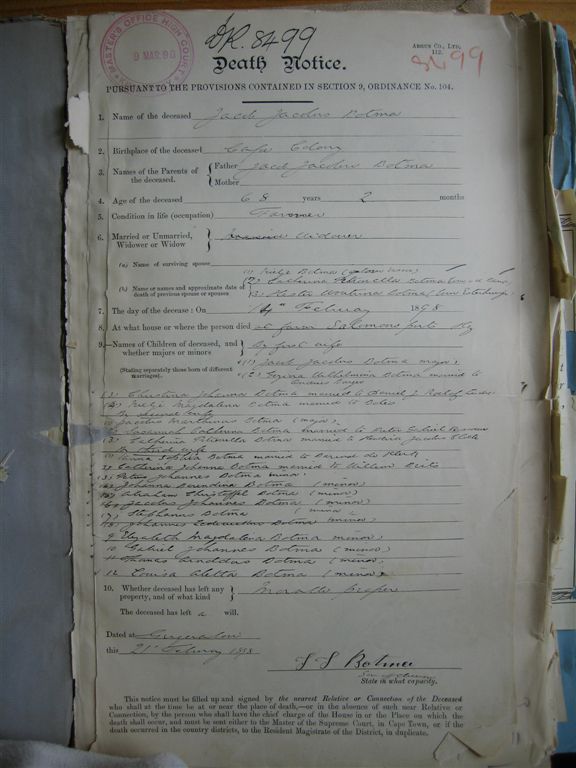 MASTER'S OFFICE HIGH COURT
9 MAR 98
DR. 8499
ARGUS CO., LTD.
112.
8499
Death Notice.
PURSUANT TO THE PROVISIONS CONTAINED IN SECTION 9, ORDINANCE No. 104.
1. Name of the deceased Jacob Jacobus Botma
2. Birthplace of the deceased Cape Colony
3. Names of the Parents of the deceased. Father Jacob Jacobus Botma
Mother
4. Age of the deceased 68 years 2 months
5. Condition in life (occupation) Farmer
6. Married or Unmarried, Widower or Widow Widower
(a) Name of surviving spouse
(b) Name or names and approximate date of death of previous spouse or spouses
(1) Botma
(2) Catharina Petronella Botma
(3) Hester Botma
7. The day of the decease: On 14th February 1898
8. At what house or where the person died at farm Salomons
9. Names of Children of deceased, and whether majors or minors
(Stating separately those born of different marriages).
By first wife
(1) Jacob Jacobus Botma major
(2) Botma married to
(3) Christina Johanna Botma married to Daniel J.
(4) Magdalena Botma married to
By second wife
Jacobus Marthinus Botma (major)
Botma married to Gabriel
Catharina Petronella Botma married to Hendrik Jacobus
By third wife
Anna Sophia Botma married to de Klerk
2) Catharina Johanna Botma married to William
(3) Petrus Johannes Botma minor
Johanna Berendina Botma (minor)
Abraham Christoffel Botma (minor)
Jacobus Johannes Botma (minor)
7) Stephanus Botma (minor)
Johannes Botma (minor)
9 Elizabeth Magdalena Botma minor
10 Gabriel Johannes Botma (minor)
Thomas Arnoldus Botma (minor)
12 Louisa Aletta Botma (minor)
10. Whether deceased has left any property, and of what kind Movable
The deceased has left a will.
Dated at
this 21st February 1898
Botma
State in what capacity.
This notice must be filled up and signed by the nearest Relative or Connection of the Deceased
who shall at the time be at or near the place of death,—or in the absence of such near Relative or
Connection, by the person who shall have the chief charge of the House in or the Place on which the
death shall occur, and must be sent either to the Master of the Supreme Court, in Cape Town, or if the
death occurred in the country districts, to the Resident Magistrate of the District, in duplicate.